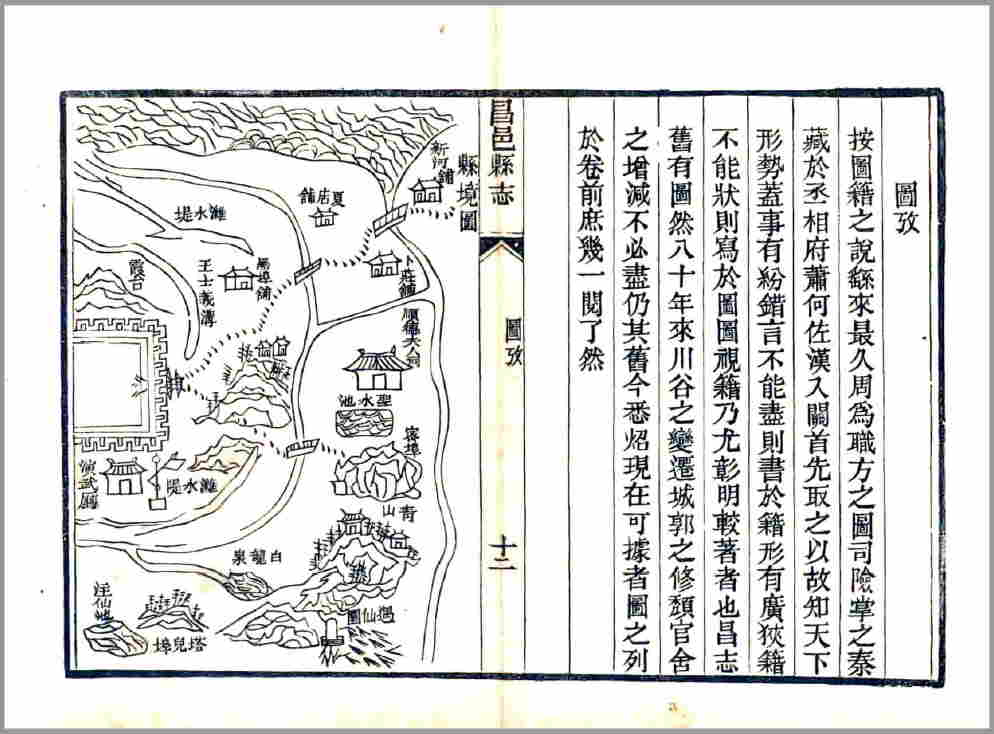 圖攷
按圖籍之說繇來最久周為職方之圖司險掌之秦
藏於丞相府蕭何佐漢入關首先取之以故知天下
形勢蓋事有紛錯言不能盡則書於籍形有廣狹籍
不能狀則寫於圖圖視籍乃尤彰明較著者也昌志
舊有圖然八十年來川谷之變遷城郭之修頹官舍
之增減不必盡仍其舊今悉炤現在可據者圖之列
於卷前庶幾一閱了然
昌邑縣志
圖攷
十二
縣境圖
新河舖
卜莊舖
夏店舖
濰水堤
王士義溝
霞台
順德夫人祠
聖水池
密埠
青山
濰水隄
演武廳
白龍泉
遇仙園
塔兒埠